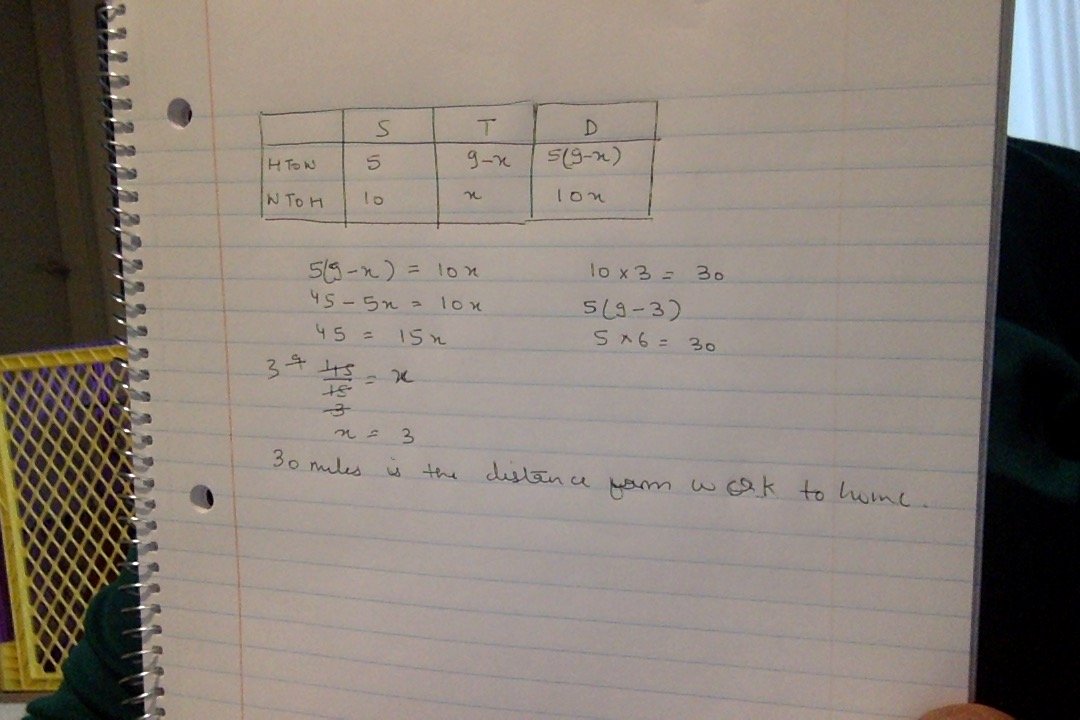 S T D
H TO W 5 9-x 5(9-x)
W TO H 10 x 10x
5(9-x) = 10x
10 x 3 = 30
45 - 5x = 10x
5(9-3)
45 = 15x
5 x 6 = 30
3 9 45/15 = x
3
x = 3
30 miles is the distance form work to home.